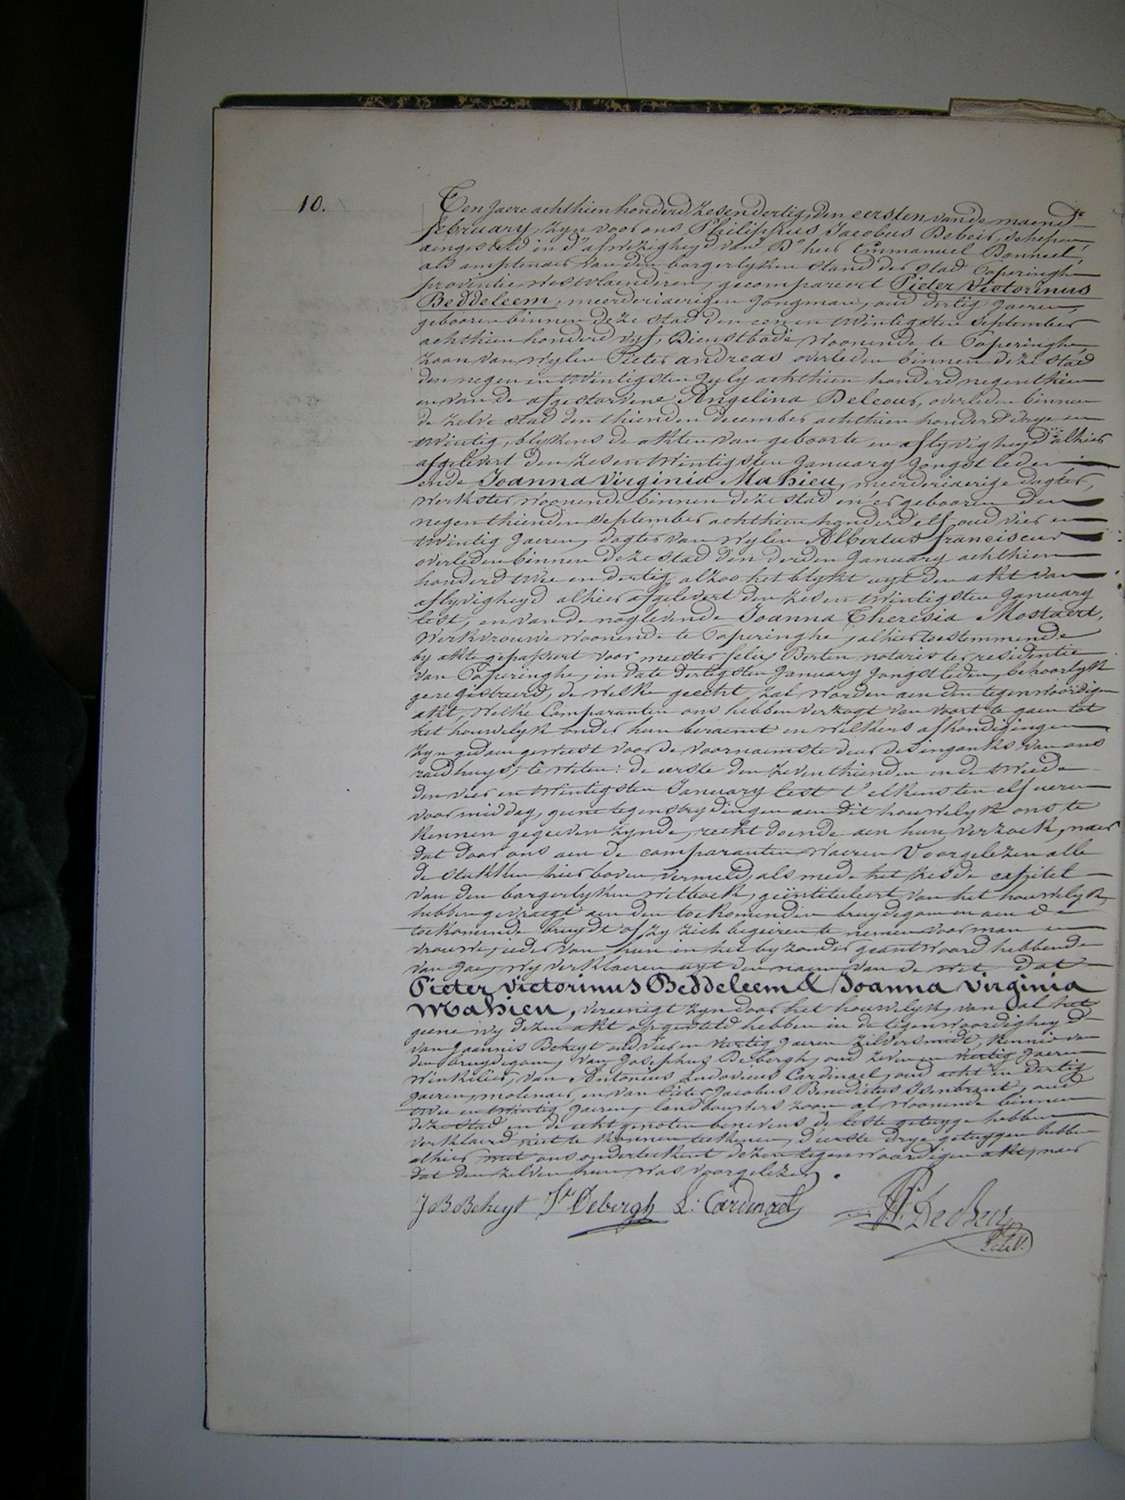 10.
Ten Jaere achthien honderd zes en dertig, den eersten van de maend
february, zyn voor ons Philippus Jacobus Deboir, schepen
aengesteld in d'afwezigheyd van d'heer Emmanuel Bonneel,
als amptenaer van den borgerlyken stand der stad Poperinghe
provintie Westvlaenderen, gecompareert Pieter Victorinus
Beddeleem, meerderjaerigen Jongman, oud dertig Jaeren,
gebooren binnen deze stad den een en twintigsten September
achthien honderd vyf, Dienstbode woonende te Poperinghe
zoon van wylen Pieter andreas overleden binnen deze stad
den negen en twintigsten July achthien honderd negenthien
en van de afgestorvene Angelina Delcour, overleden binnen
de zelve stad den thienden december achthien honderd drye en
twintig, blykens de akten van geboorte en aflyvigheyd alhier
afgelevert den zes en twintigsten January Jongstleden
ende Joanna Virginia Mahieu, meerderjaerige dogter,
werkster woonende binnen deze stad en er gebooren den
negenthienden September achthien honderd elf oud vier en
twintig Jaeren, dogter van wylen Albertus franciscus
overleden binnen deze stad den derden January achthien
honderd twee en dertig alzoo het blykt uyt den akt van
aflyvigheyd alhier afgelevert den zes en twintigsten January
lest, en van de naglevende Joanna Theresia Mostaert,
werkvrouwe woonende te Poperinghe, alhier toestemmende
by akte gepasseert voor meester felix Berten notaris ter residentie
van Poperinghe, in date dertigsten January Jongstleden, behoorlyk
geregistreerd, de welke geecht zal worden aen den tegenwoordigen
akt, Welke Comparanten ons hebben verzogt van voort te gaen tot
het houwelyk onder hun beraemt en welkers afkondigingen
zyn gedaen geweest voor de voornaemste deur des ingangs van ons
raedhuys, te weten: de eerste den zeventhienden en de tweede
den vier en twintigsten January lest t'elkens ten elf uren
voormiddag, geene tegenstrydingen aen dit houwelyk ons te
kennen gegeeven zynde, recht doende aen hun verzoek, naer
dat door ons aen de comparanten waeren Voorgelezen alle
de stukken hierboven vermeld, als mede het zesde capitel
van den borgerlyken wetboek, geïntituleert van het houwelyk,
hebben gevraegt aen den toekomenden bruydegom en aen de
toekomende bruydt of zy zich begeiren te nemen voor man en
vrouwe, ieder van hun in het byzonder geantwoord hebbende
van Jae, wy verklaeren uyt den naem van de wet dat
Pieter Victorinus Beddeleem & Joanna Virginia
Mahieu, vereenigt zyn door het houwelyk, van al het
geene wy dezen akt opgesteld hebben in de tegenwoordigheyd
van Joannis Beheyt oud vier en veertig Jaeren Zilversmidt, kennis van
den bruydegom, van Josephus Debergh, oud zeven en veertig Jaeren
Winkelier, van Antonius Ludovicus Cardinael, oud acht en dertig
Jaeren, molenaer, en van Pieter Jacobus Benedictus Isenbrant, oud
twee en twintig Jaeren, landbouwers zoon al woonende binnen
deze stad en de echtgenoten benevens de leste getuyge hebben
verklaerd niet te konnen teekenen, d'eerste drye getuygen hebben
alhier met ons onderteekent dezen tegenwoordigen akt, naer
dat den zelven hun was voorgelezen.
J B Beheyt Js Debergh L: Cardinael